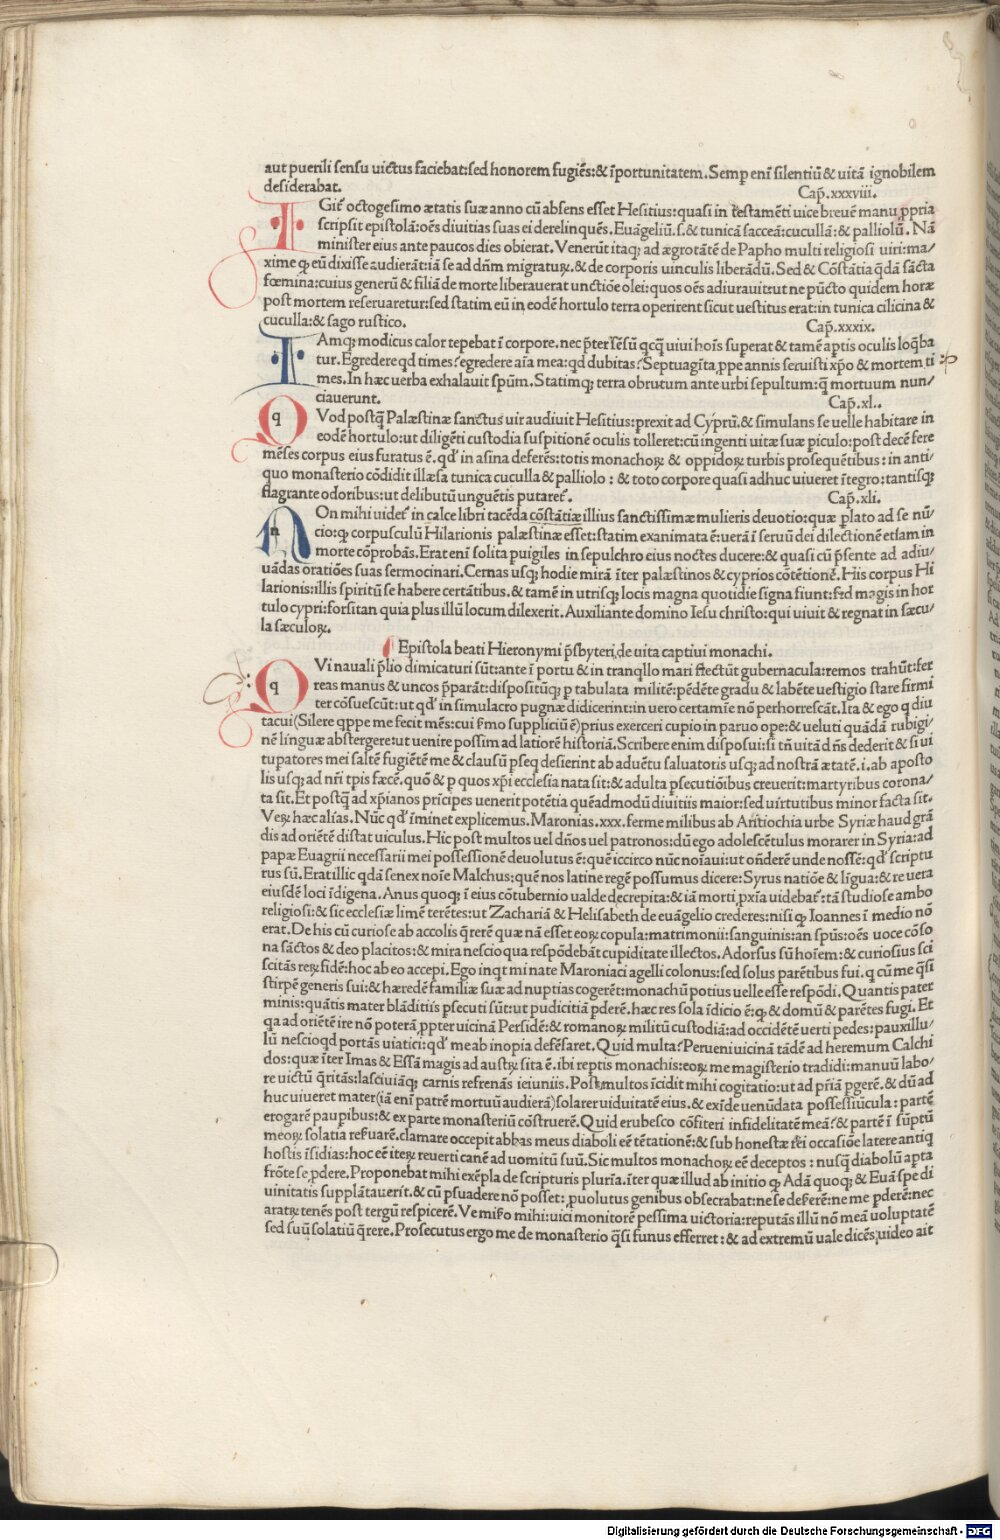 aut puerili sensu uictus faciebat:sed honorem fugiēs:& īportunitatem.Semꝑ enī silentiū & uitā ignobilem
desiderabat. Cap̄.xxxviii.
IGit᷑ octogesimo ætatis suæ anno cū absens esset Hesitius:quasi in testamēti uice breuē manu ꝓpria
scripsit epistolā:oēs diuitias suas ei derelinquēs.Euāgeliū.s.& tunicā sacceā:cucullā:& palliolū. Nā
minister eius ante paucos dies obierat. Venerūt itaqꝫ ad ægrotātē de Papho multi religiosi uiri:ma/
xime ꝙ eū dixisse audierāt:iā se ad dn̄m migraturꝫ.& de corporis uinculis liberādū. Sed & Cōstātia q̄dā sācta
fœmina:cuius generū & filiā de morte liberauerat unctiōe olei:quos oēs adiurauit:ut ne pūcto quidem horæ
post mortem reseruaretur:sed statim eū in eodē hortulo terra operirent sicut uestitus erat:in tunica cilicina &
cuculla:& sago rustico. Cap̄.xxxix.
IAmqꝫ modicus calor tepebat ī corpore.nec p̄ter sēsū qcq̄ uiui hoīs superat & tamē aptis oculis loq̄ba
tur. Egredere qd times?egredere aīa mea:qd dubitas?Septuagīta ꝓpe annis seruisti xp̄o & mortem ti
mes.In hæc uerba exhalauit spūm.Statimqꝫ terra obrutum ante urbi sepultum:q̄ mortuum nun/
ciauerunt. Cap̄.xl..
q QVod postq̄ Palæstinæ sanctus uir audiuit Hesitius:prexit ad Cyprū.& simulans se uelle habitare in
eodē hortulo:ut diligēti custodia suspitionē oculis tolleret:cū ingenti uitæ suæ ꝑiculo:post decē fere
mēses corpus eius furatus ē.qd᷑ in asina deferēs:totis monachorꝫ & oppidorꝫ turbis prosequētibus:in anti/
quo monasterio cōdidit illæsa tunica cuculla & palliolo : & toto corpore quasi adhuc uiueret ītegro:tantisqꝫ
flagrante odoribus:ut delibutū unguētis putaret᷑. Cap̄.xli.
n NOn mihi uidet᷑ in calce libri tacēda cōstātiæ illius sanctissimæ mulieris deuotio:quæ plato ad se nū/
cio:ꝙ corpusculū Hilarionis palæstinæ esset:statim exanimata ē:uerā ī seruū dei dilectionē etiam in
morte cōprobās.Erat enī solita puigiles in sepulchro eius noctes ducere:& quasi cū p̄sente ad adiu/
uādas oratiōes suas sermocinari.Cernas usqꝫ hodie mirā īter palæstinos & cyprios cōtētionē.His corpus Hi
larionis:illis spiritū se habere certātibus.& tamē in utrisqꝫ locis magna quotidie signa fiunt:sed magis in hor
tulo cypri:forsitan quia plus illū locum dilexerit.Auxiliante domino Iesu christo:qui uiuit & regnat in sæcu/
la sæculorꝫ.
Epistola beati Hieronymi p̄sbyteri,de uita captiui monachi.
q QVi nauali p̄lio dimicaturi sūt:ante ī portu & in tranqllo mari flectūt gubernacula:remos trahūt:fer
reas manus & uncos p̄parāt:dispositūqꝫ p tabulata militē:pēdēte gradu & labēte uestigio stare firmi
ter cōsuescūt:ut qd᷑ in simulacro pugnæ didicerint:in uero certamīe nō perhorrescāt.Ita & ego q diu
tacui(Silere qppe me fecit mēs:cui ſmo suppliciū ē)prius exerceri cupio in paruo ope:& ueluti quādā rubigi/
nē linguæ abstergere:ut uenire possim ad latiorē historiā.Scribere enim disposui:si tn̄ uitā dn̄s dederit & si ui
tupatores mei saltē fugiētē me & clausū pseq desierint ab aduētu saluatoris usqꝫ ad nostrā ætatē.i.ab aposto
lis usqꝫ ad nr̄i tp̄is fæcē.quō & p quos xp̄i ecclesia nata sit:& adulta psecutiōibus creuerit:martyribus corona/
ta sit.Et postq̄ ad xp̄ianos prīcipes uenerit potētia quēadmodū diuitiis maior:sed uirtutibus minor facta sit.
Verꝫ hæc alias. Nūc qd᷑ īminet explicemus. Maronias.xxx.ferme milibus ab Antiochia urbe Syriæ haud grā
dis ad oriētē distat uiculus. Hic post multos uel dn̄os uel patronos:dū ego adolescētulus morarer in Syria:ad
papæ Euagrii necessarii mei possessionē deuolutus ē:quē iccirco nūc noīaui:ut oñderē unde nossē:qd᷑ scriptu
rus sū.Erat illic qdā senex noīe Malchus:quē nos latine regē possumus dicere:Syrus natiōe & līgua:& re uera
eiusdē loci īdigena. Anus quoqꝫ ī eius cōtubernio ualde decrepita:& iā morti ꝓxīa uidebat᷑:tā studiose ambo
religiosi:& sic ecclesiæ limē terētes:ut Zachariā & Helisabeth de euāgelio crederes:nisi ꝙ Ioannes ī medio nō
erat. De his cū curiose ab accolis q̄rerē quæ nā esset eorꝫ copula:matrimonii:sanguinis:an spūs:oēs uoce cōso
na sāctos & deo placitos:& mira nescio qua respōdebāt cupiditate illectos.Adorsus sū hoīem:& curiosius sci
scitās rerꝫ fidē:hoc ab eo accepi. Ego inqt mi nate Maroniaci agelli colonus:sed solus parētibus fui.q cū me q̄si
stirpē generis sui:& hæredē familiæ suæ ad nuptias cogerēt:monachū potius uelle esse respōdi.Quantis pater
minis:quātis mater blāditiis psecuti sūt:ut pudicitiā pderē.hæc res sola īdicio ē:ꝙ & domū & parētes fugi. Et
qa ad oriētē ire nō poterā ꝓpter uicinā Persidē:& romanorꝫ militū custodiā:ad occidētē uerti pedes:pauxillu/
lū nescioqd portās uiatici:qd᷑ me ab inopia defēsaret.Quid multa?Perueni uicinā tādē ad heremum Calchi
dos:quæ īter Imas & Essā magis ad austrꝫ sita ē.ibi reptis monachis:eorꝫ me magisterio tradidi:manuū labo/
re uictū q̄ritās:lasciuiāqꝫ carnis refrenās ieiuniis. Post multos īcidit mihi cogitatio:ut ad pr̄iā pgerē.& dū ad
huc uiueret mater(iā enī patrē mortuū audierā)solarer uiduitatē eius.& exīde uenūdata possessiūcula : partē
erogarē paupibus:& ex parte monasteriū cōstruerē.Quid erubesco cōfiteri infidelitatē meā?& partē ī sūptū
meorꝫ solatia reſuarē.clamare occepit abbas meus diaboli eē tētationē:& sub honestæ rei occasiōe latere antiq
hostis īsidias:hoc eē iterꝫ reuerti canē ad uomitū suū. Sic multos monachorꝫ eē deceptos : nusq̄ diabolū apta
frōte se ꝓdere.Proponebat mihi exēpla de scripturis plurīa.īter quæ illud ab initio ꝙ Adā quoqꝫ & Euā spe di
uinitatis supplātauerit.& cū psuadere nō posset : ꝓuolutus genibus obsecrabat:ne se desererē:ne me pderē:nec
aratrꝫ tenēs post tergū respicerē. Ve miſo mihi:uici monitorē pessima uictoria:reputās illū nō meā uoluptatē
sed suū solatiū q̄rere.Prosecutus ergo me de monasterio q̄si funus efferret : & ad extremū uale dicēs,uideo ait
Digitalisierung gefördert durch die Deutsche Forschungsgemeinschaft - DFG